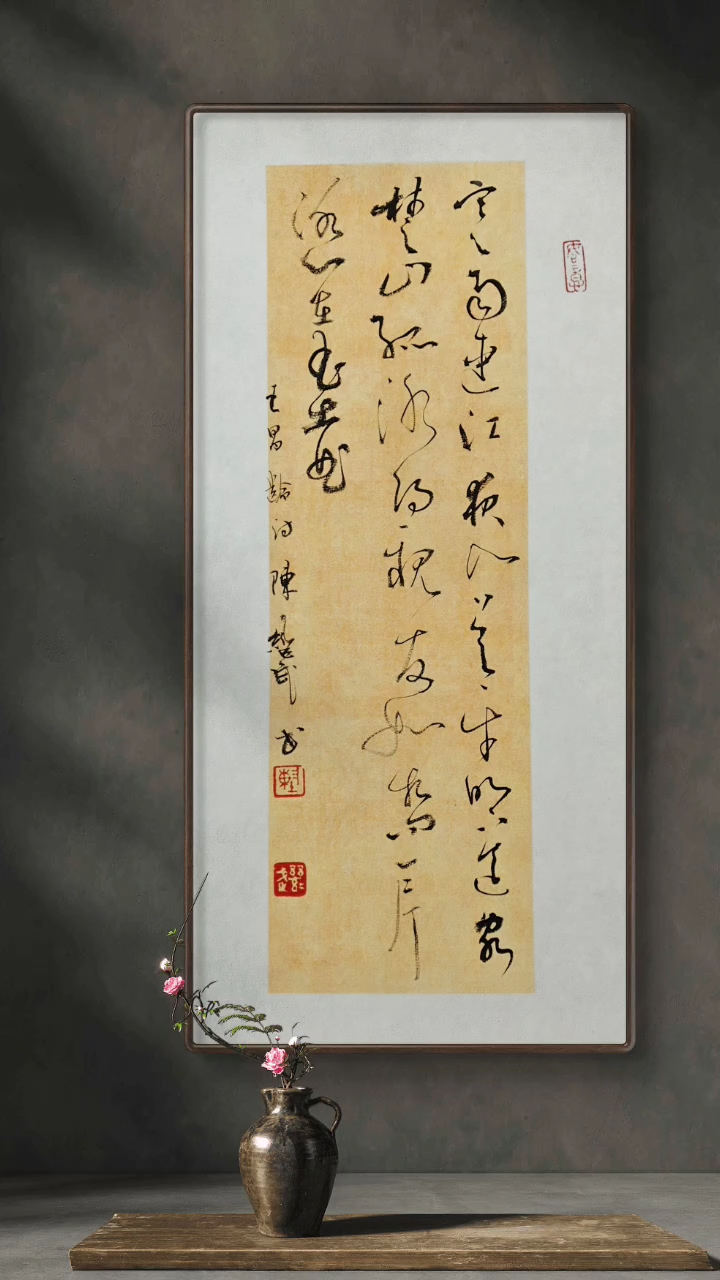 寒雨連江夜入吳平明送客
楚山孤洛陽親友如相問一片
冰心在玉壺
王昌齡詩 陳 武書